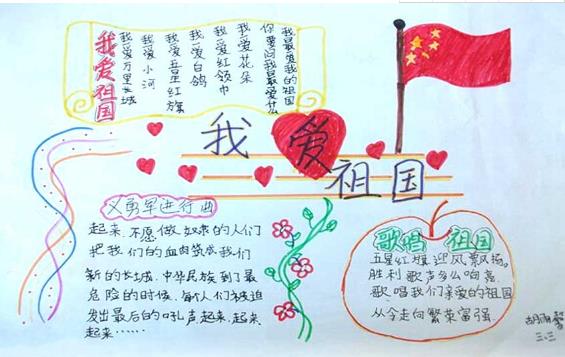 我爱祖国
我爱万里长城
我爱小河
我爱五星红旗
我爱白鸽
我爱红领巾
我爱花朵
你要问我最爱什么
我最爱我的祖国
我爱祖国
义勇军进行曲
起来,不愿做奴隶的人们
把我们的血肉筑成我们
新的长城,中华民族到了最
危险的时候,每个人们被迫
发出最后的吼声,起来,起来
起来……
歌唱 祖国
五星红旗迎风飘扬,
胜利歌声多么响亮.
歌唱我们亲爱的祖国
从今走向繁荣富强.
三.三